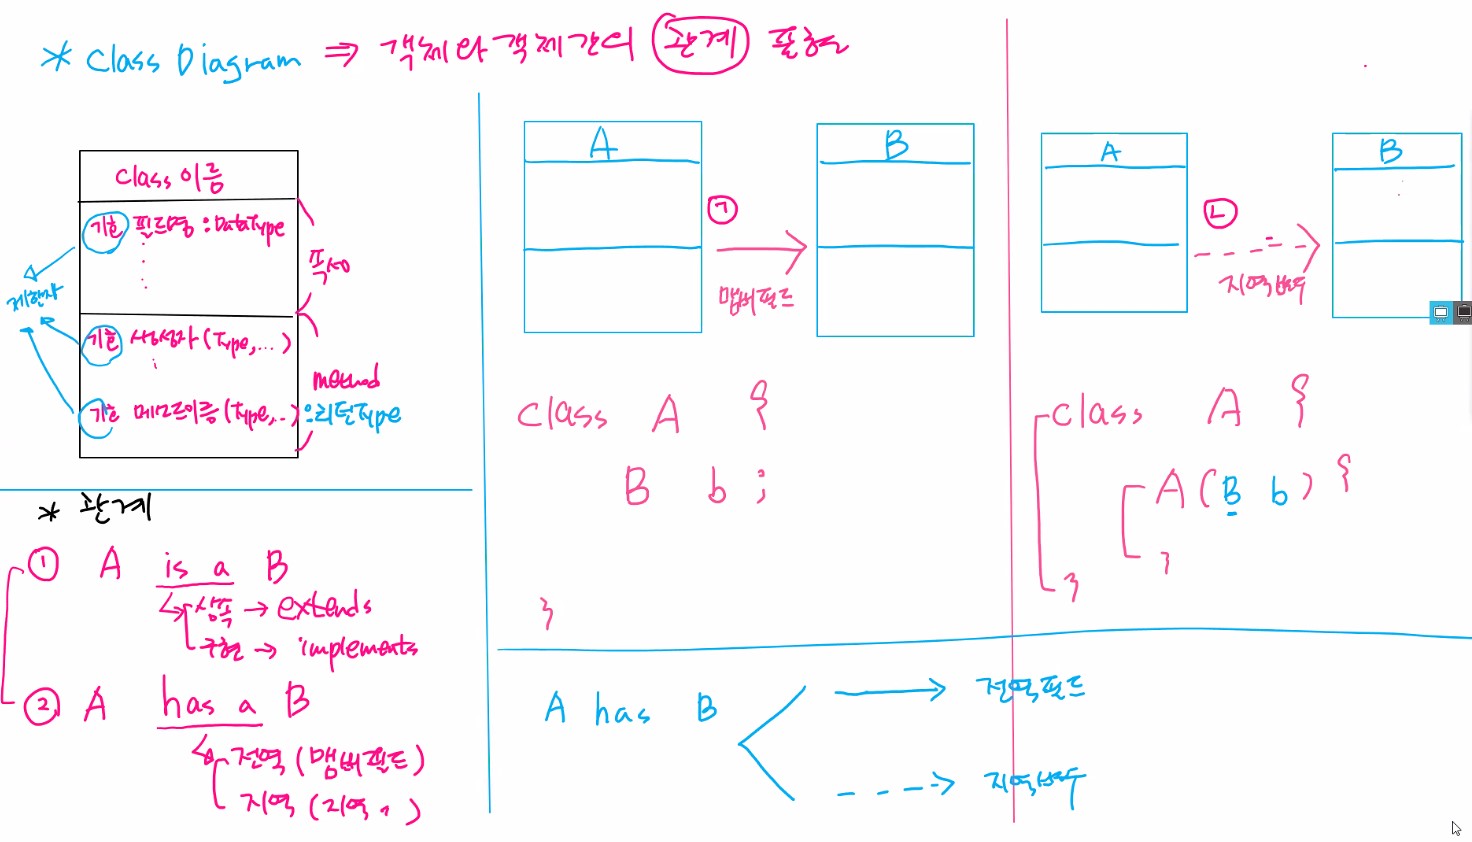 * Class Diagram ⇒ 객체와 객체간의 관계 표현
Class 이름
기호 필드명 : DataType
속성
제한자
기호 생성자 (Type, ...)
method
기호 메소드이름 (Type, ..) : 리턴Type
* 관계
① A is a B
상속 → extends
구현 → implements
② A has a B
전역 (맴버필드)
지역 (지역 )
A
B
㉠
맴버필드
class A {
B b ;
}
A
B
㉡
지역변수
class A {
A ( B b ) {
}
}
A has B
→ 전역필드
---> 지역변수